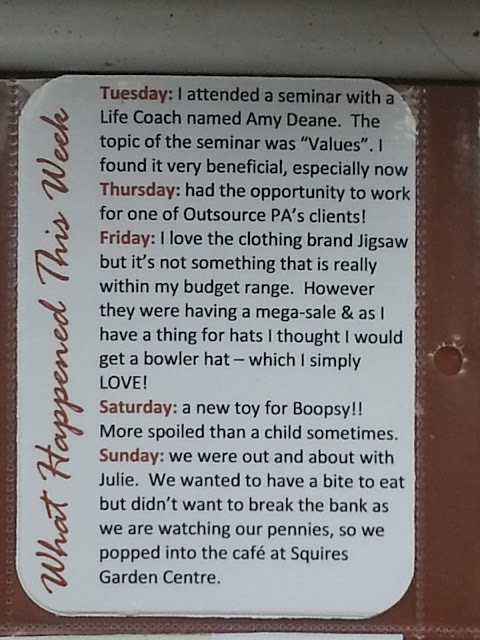 What Happened This Week
Tuesday: I attended a seminar with a
Life Coach named Amy Deane.  The
topic of the seminar was “Values”. I
found it very beneficial, especially now
Thursday: had the opportunity to work
for one of Outsource PA’s clients!
Friday: I love the clothing brand Jigsaw
but it’s not something that is really
within my budget range.  However
they were having a mega-sale & as I
have a thing for hats I thought I would
get a bowler hat – which I simply
LOVE!
Saturday: a new toy for Boopsy!!
More spoiled than a child sometimes.
Sunday: we were out and about with
Julie.  We wanted to have a bite to eat
but didn’t want to break the bank as
we are watching our pennies, so we
popped into the café at Squires
Garden Centre.